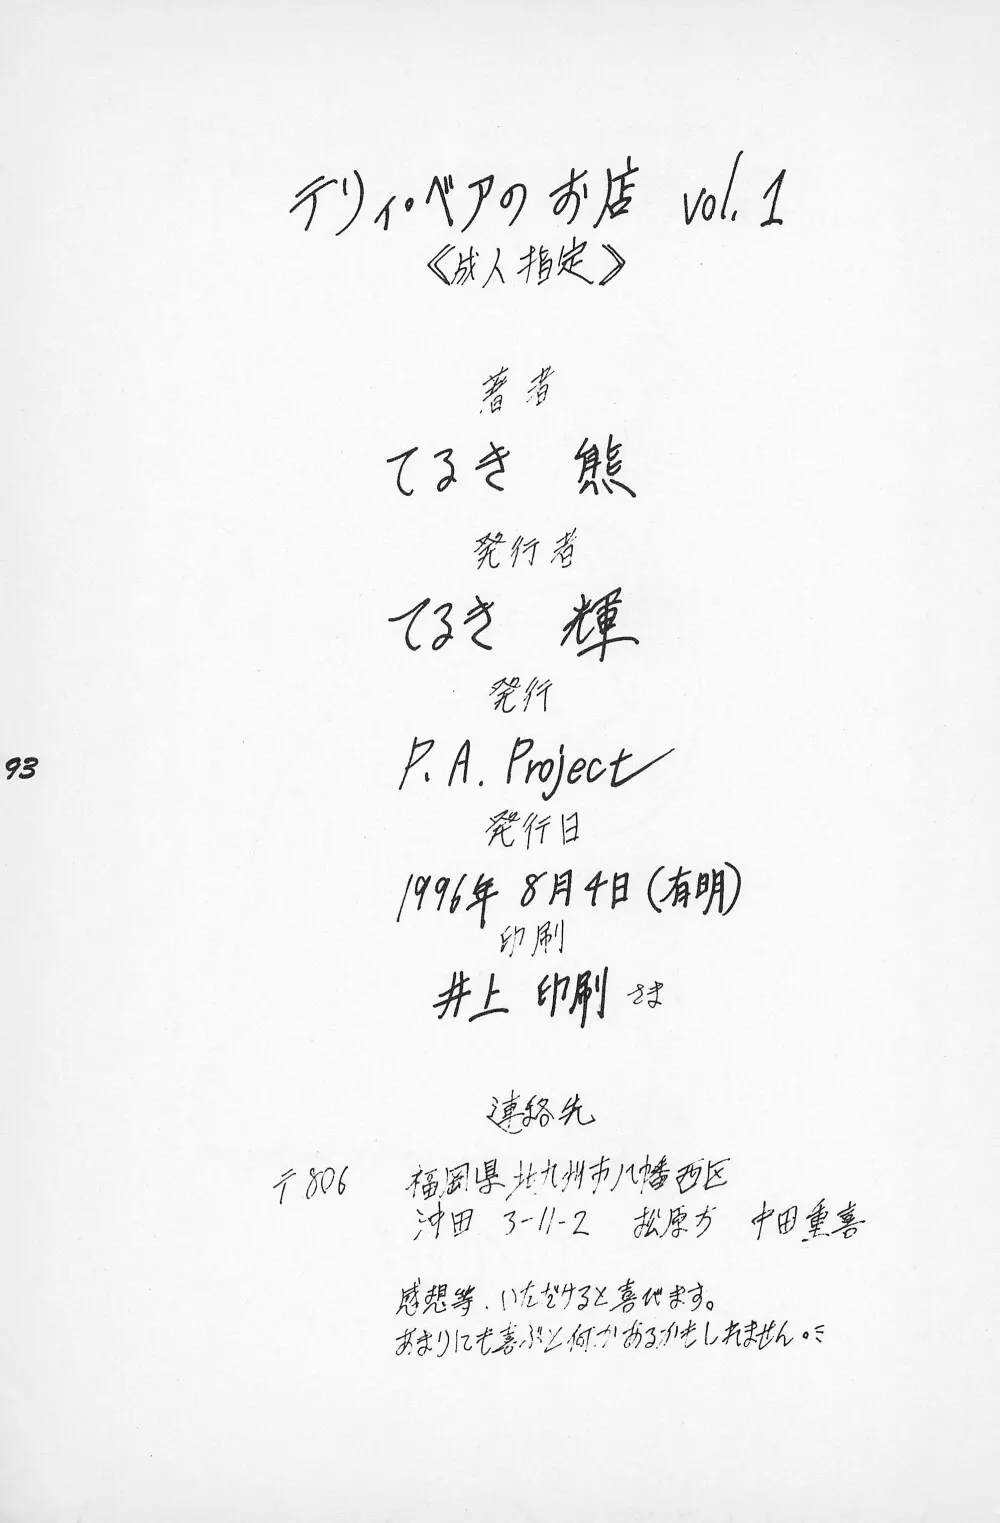 テリィ・ベアのお店 vol.1
《成人指定》
著者
てるき 熊
発行者
てるき 輝
発行
P.A.Project
93
発行日
1996年8月4日(有明)
印刷
井上印刷 さま
連絡先
〒806 福岡県北九州市八幡西区
沖田 3-11-2 松原方 中田重喜
感想等、いただけると喜びます。
あまりにも喜ぶと何かあるかもしれません。